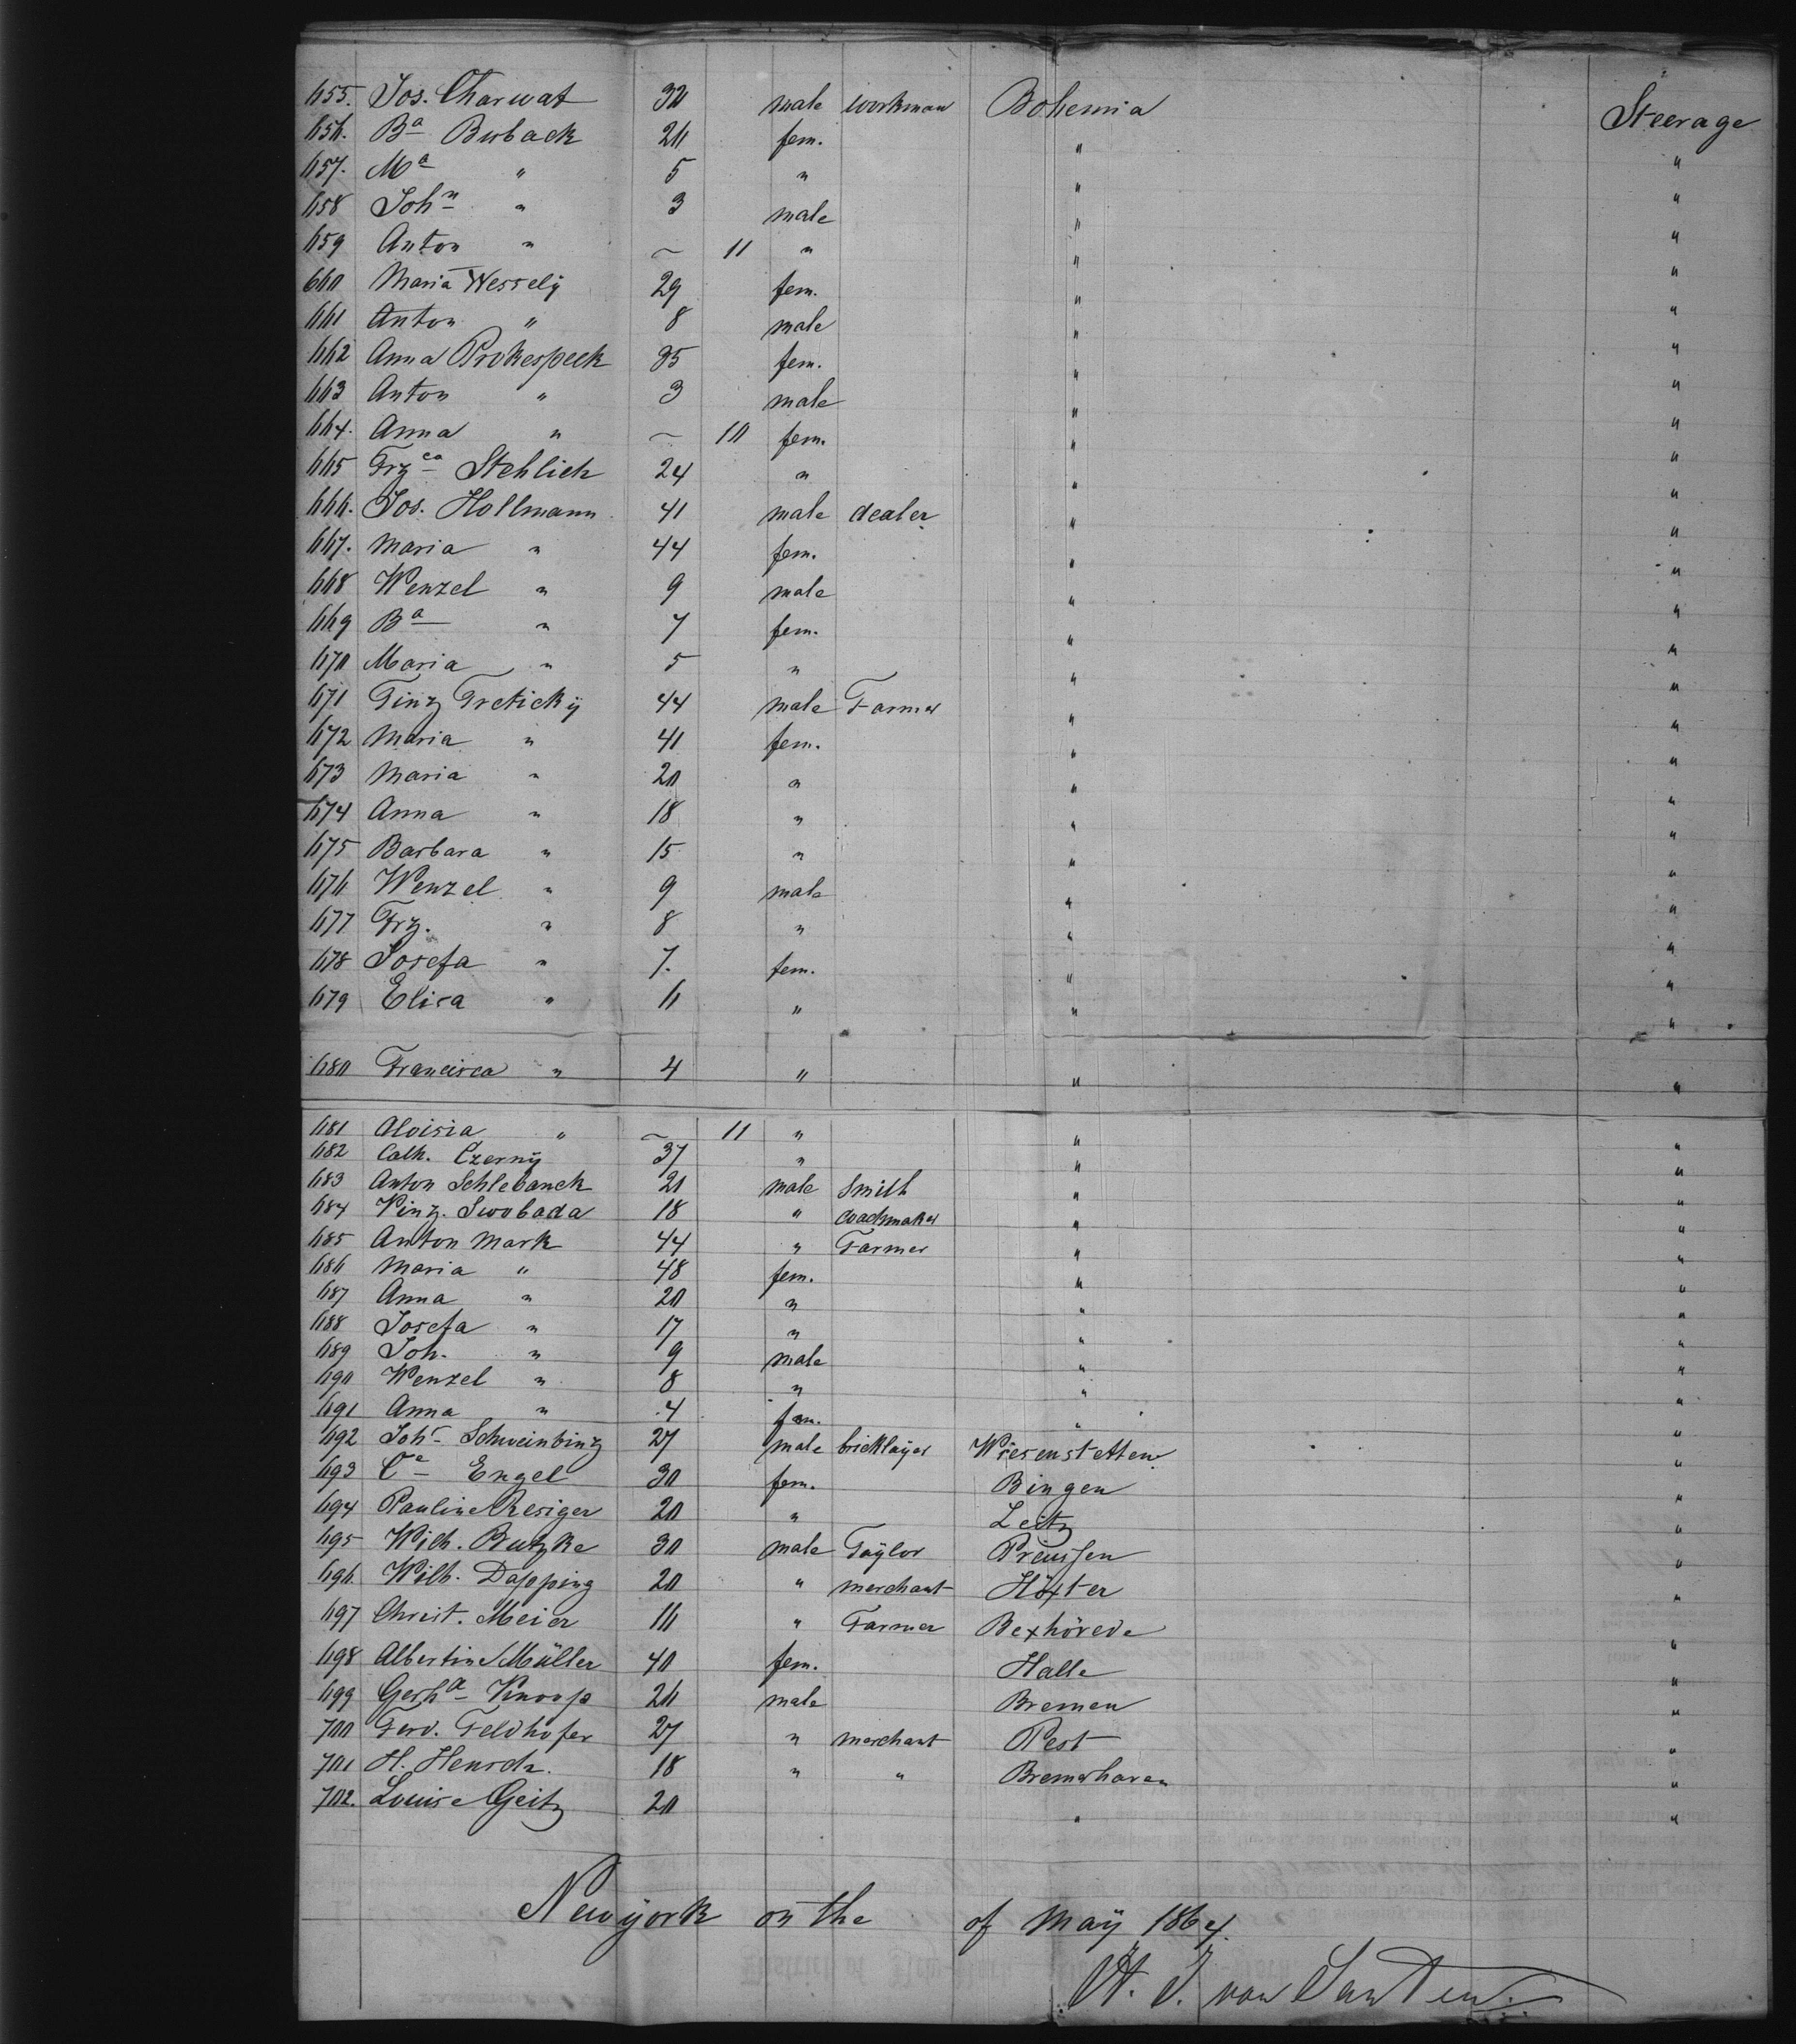 655. Jos. Charwat 30 male workman Bohemia Steerage
656. Ba Burback 26 fem. " "
657. Ma " 5 " " "
658 John " 3 male " "
659 Anton " ~ 11 " " "
660 Maria Wessely 29 fem. " "
661 Anton " 8 male " "
662 Anna Prokespeck 35 fem. " "
663 Anton " 3 male " "
664. Anna " ~ 10 fem. " "
665 Frzca Stehlick 24 " " "
666. Jos. Hollmann 41 male dealer " "
667. Maria " 44 fem. " "
668 Wenzel " 9 male " "
669 Ba " 7 fem. " "
670 Maria " 5 " " "
671 Finz Tretickÿ 44 male Farmer " "
672 Maria " 41 fem. " "
673 Maria " 20 " " "
674 Anna " 18 " " "
675 Barbara " 15 " " "
676 Wenzel " 9 male " "
677 Frz. " 8 " " "
678 Josefa " 7. fem. " "
679 Elisa " 6 " " "
680 Francisca " 4 " " "
681 Aloisia " ~ 11 " " "
682 Cath. Czernÿ 37 " " "
683 Anton Schlebanek 21 male Smith " "
684 Vinz. Swobada 18 " coachmaker " "
685 Anton Mark 44 " Farmer " "
686 Maria " 48 fem. " "
687 Anna " 20 " " "
688 Josefa " 17 " " "
689 Joh. " 9 male " "
690 Wenzel " 8 " " "
691 Anna " 4 fem. " "
692 Johs Schweinbinz 27 male bricklaÿer Wiesenstetten "
693 Ce Engel 30 fem. Bingen "
694 Pauline Resiger 20 " Leitz "
695 Wilh. Butzke 30 male Taÿlor Preussen "
696 Wilh. Dapping 20 " merchant Höxter "
697 Christ. Meier 16 " Farmer Bexhövede "
698 Albertine Müller 40 fem. Halle "
699 Gerhd Knoop 26 male Bremen "
700 Ferd. Feldhofer 27 " merchant Pest "
701 H. Hensch. 18 " " Bremerhaven "
702. Louise Geitz 20 " "
New ÿork on the of Maÿ 1864.
H. J. von Santen.